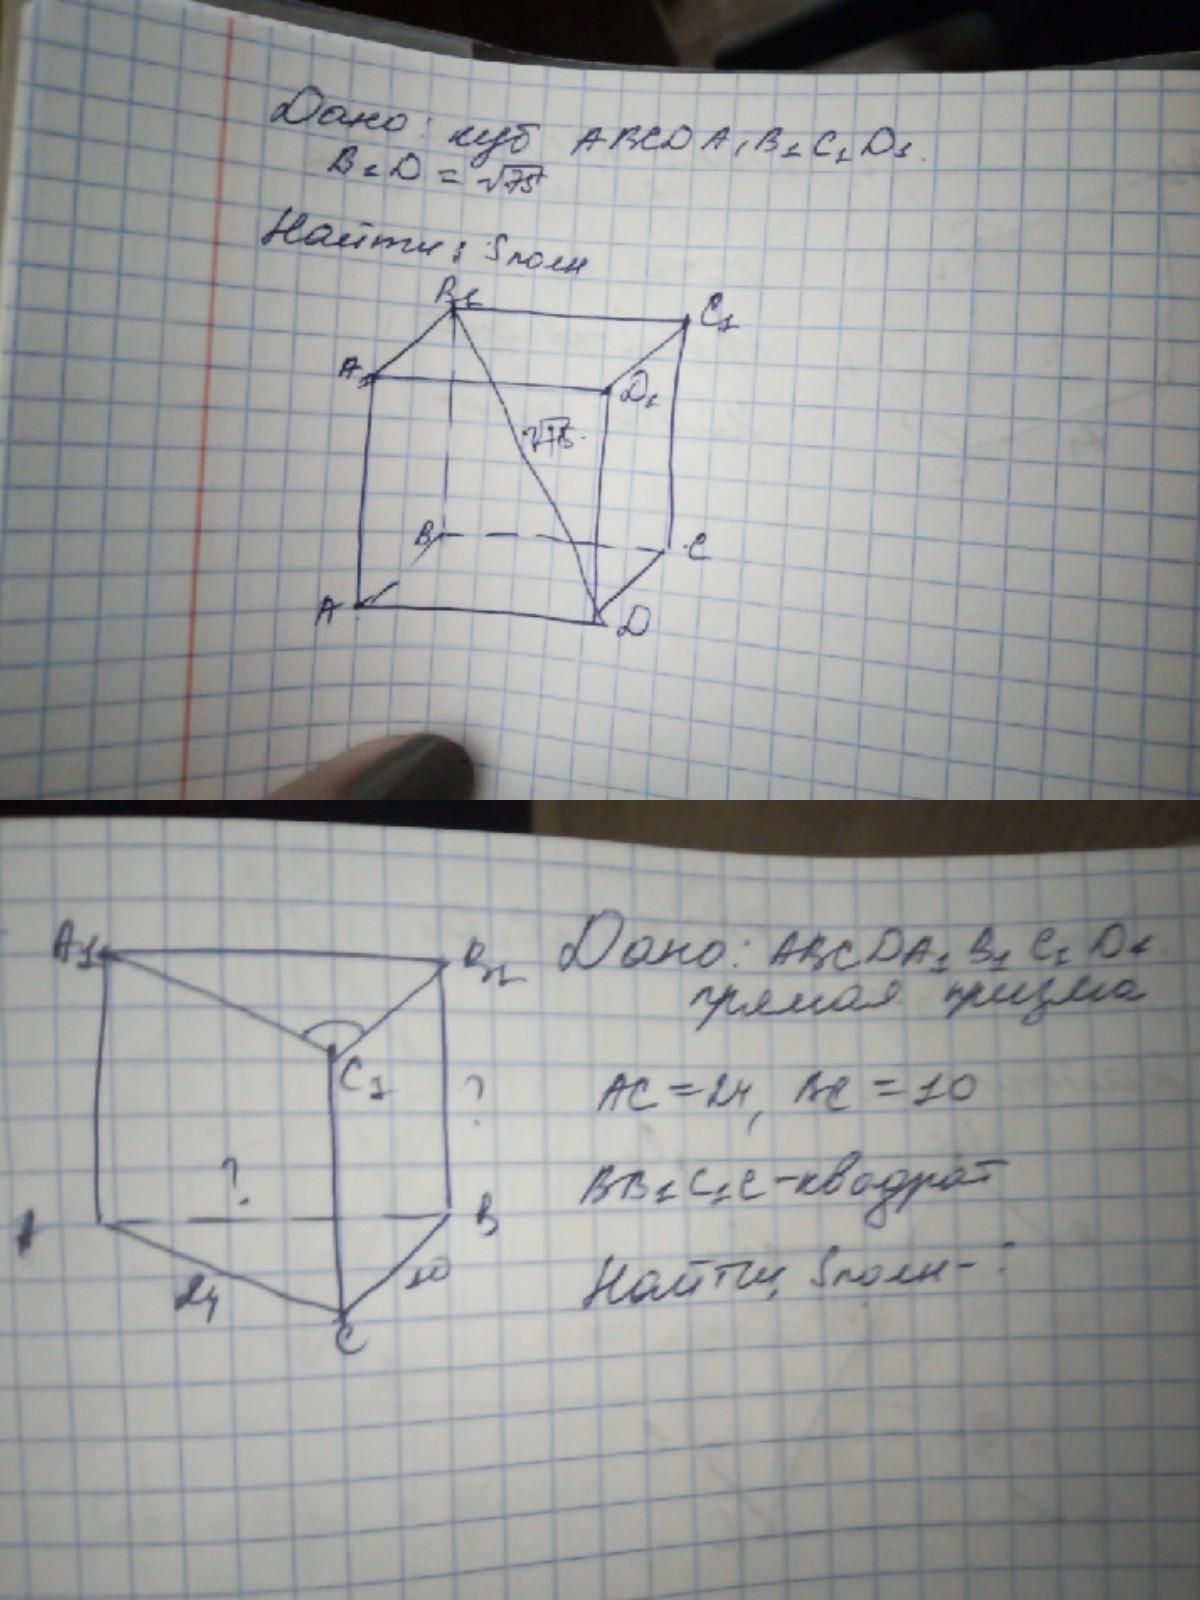 Дано: куб ABCDA₁B₁C₁D₁.
B₁D = √75
Найти: Sполн
B₁
C₁
A₁
D₁
√75
B
C
A
D
A₁
B₁
Дано: ABCDA₁B₁C₁D₁
прямая призма
C₁
?
AC = 24, BC = 10
?
BB₁C₁C - квадрат
A
B
24
10
Найти, Sполн - ?
C